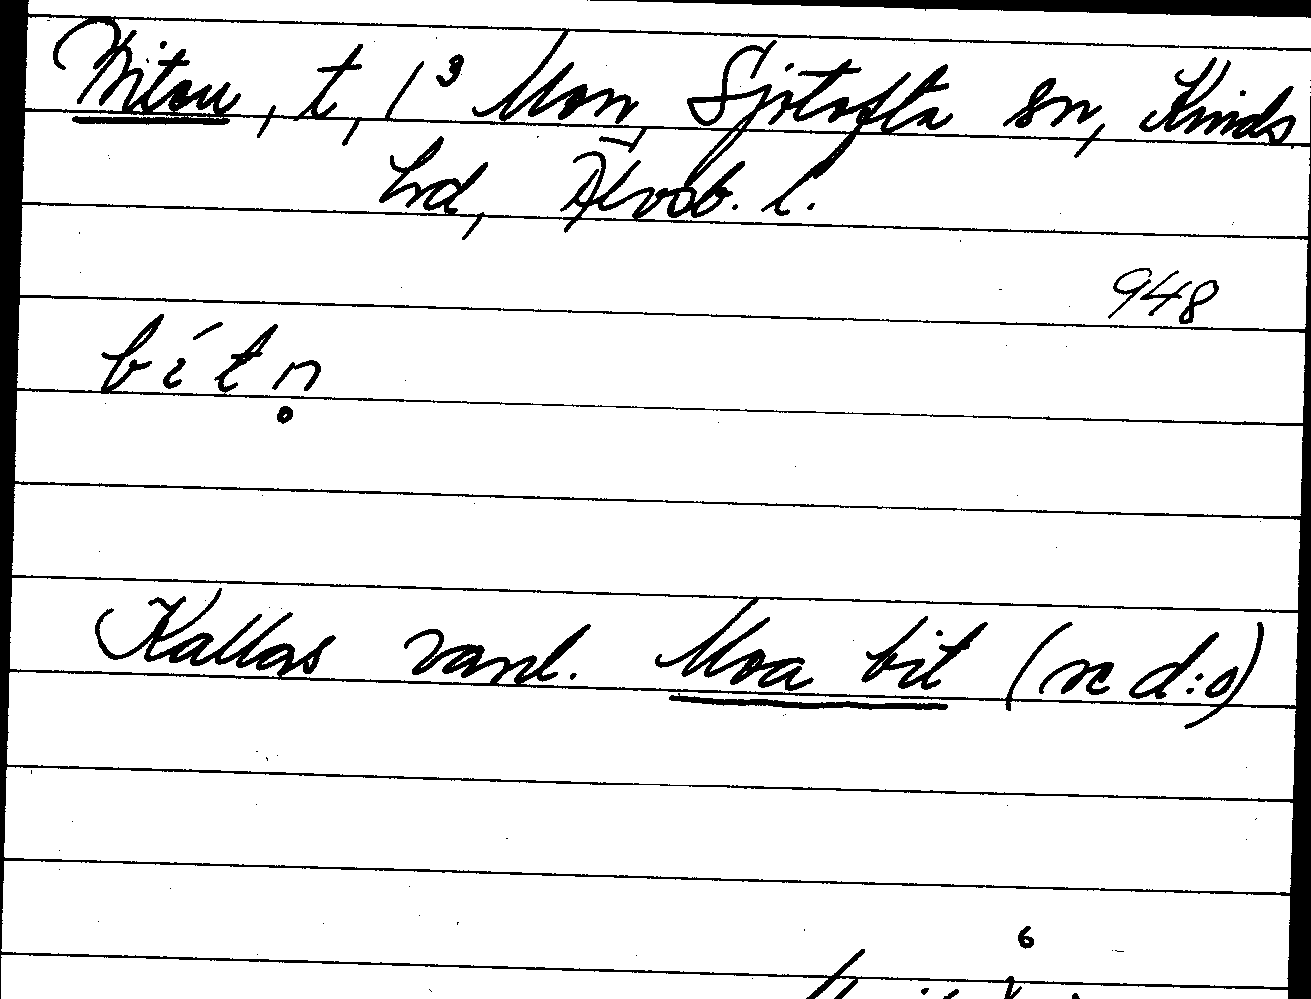 Biten, t, 1³ Mon, Sjötofta sn, Kinds
hd, Älvsb. l.
948
bítn̥
Kallas vanl. Moa bit (se d:o)
6